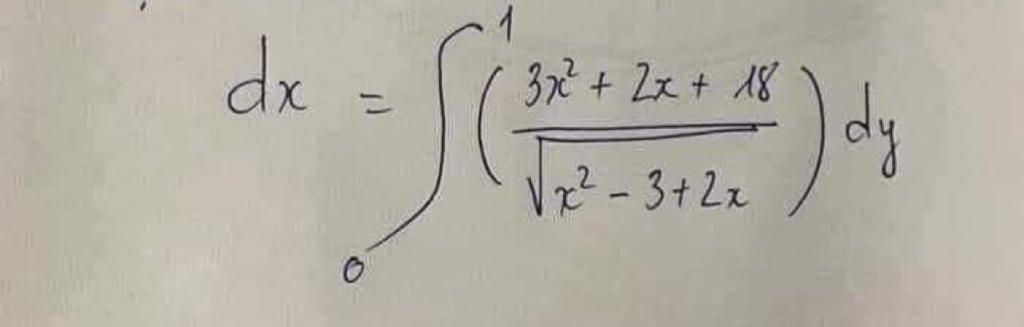 dx = ∫₀¹ ( (3x² + 2x + 18) / √(x² - 3 + 2x) ) dy